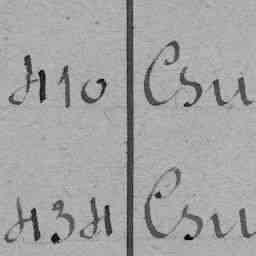 410 Csu
434 Csu